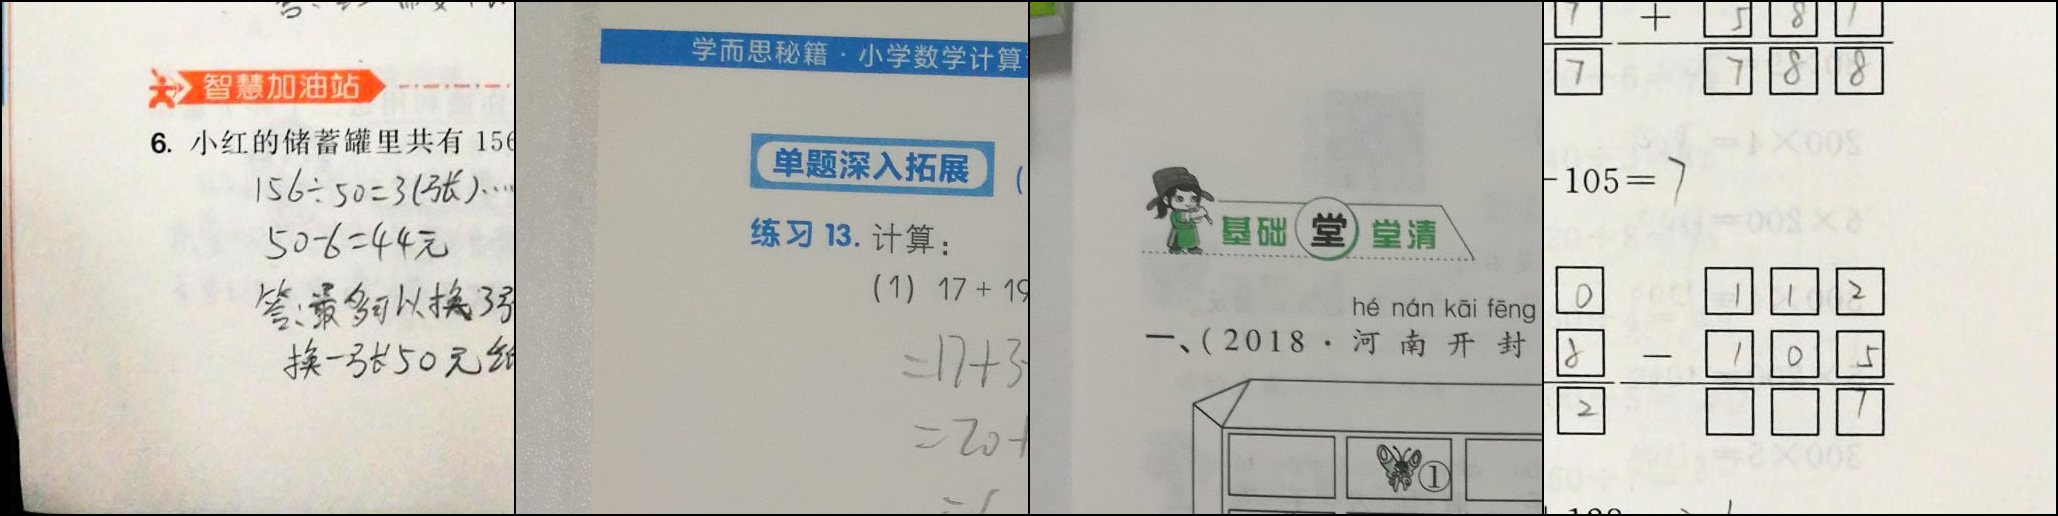 智慧加油站
6. 小红的储蓄罐里共有 156
156÷50=3(张)……
50-6=44元
答:最多可以换3张
换一张50元纸
学而思秘籍·小学数学计算
单题深入拓展
练习 13. 计算：
(1) 17 + 19
=17+3
=20+
基础堂堂清
hé nán kāi fēng
一、(2018·河南开封
①
7 + 5 8 1
7 7 8 8
-105=7
0 1 1 2
8 - 1 0 5
2 7